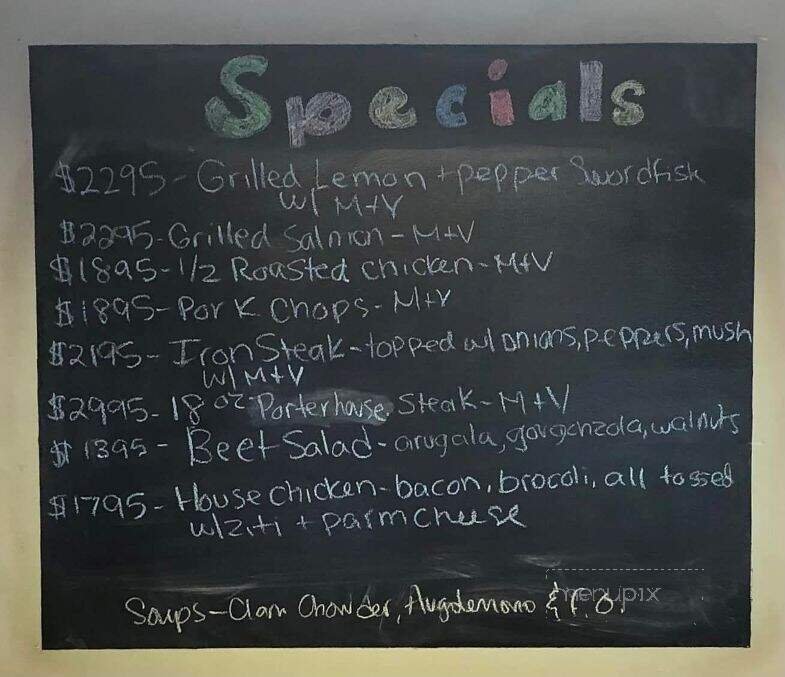 Specials
$2295- Grilled Lemon + pepper Swordfish
w/ M+V
$2295- Grilled Salmon - M+V
$1895- 1/2 Roasted chicken - M+V
$1895- Pork Chops - M+V
$2195- Iron Steak - topped w/ onions, peppers, mush
w/ M+V
$2995- 18 oz Porterhouse Steak - M+V
$1395- Beet Salad - arugala, gorgonzola, walnuts
$1795- House chicken - bacon, brocoli, all tossed
w/ ziti + parm cheese
menupix
Soups - Clam Chowder, Avgolemono &